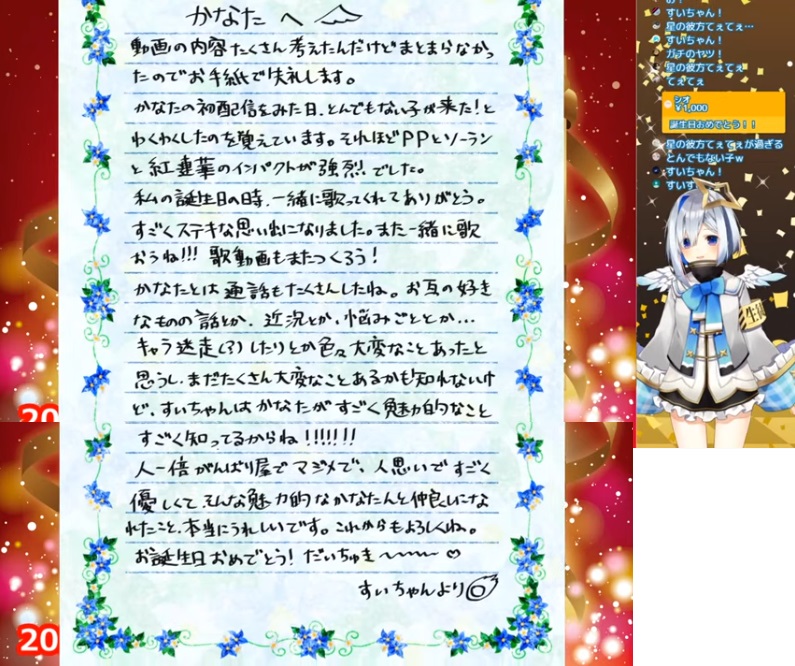 かなたへ
動画の内容たくさん考えたんだけどまとまらなかっ
たのでお手紙で失礼します。
かなたの初配信をみた日、とんでもない子が来た!と
わくわくしたのを覚えています。それほどPPとソーラン
と紅蓮華のインパクトが強烈でした。
私の誕生日の時、一緒に歌ってくれてありがとう。
すごくステキな思い出になりました。また一緒に歌
おうね!!! 歌動画もまたつくろう!
かなたとは通話もたくさんしたね。お互の好き
なものの話とか、近況とか、悩みごととか…
キャラ迷走(?)したりとか色々大変なことあったと
思うし、まだたくさん大変なことあるかも知れないけ
ど、すいちゃんはかなたがすごく魅力的なこと
すごく知ってるからね!!!!!!!
人一倍がんばり屋でマジメで、人思いですごく
優しくて、そんな魅力的なかなたんと仲良しにな
れたこと、本当にうれしいです。これからもよろしくね。
お誕生日おめでとう! だいちゅき〜〜 ♡
すいちゃんより
20
20
すいちゃん!
星の彼方てぇてぇ…
すいちゃん!
ガチのヤツ!
星の彼方てぇてぇ
てぇてぇ
シオ
¥1,000
誕生日おめでとう!!
星の彼方てぇてぇが過ぎる
とんでもない子w
すいちゃん!
すいす